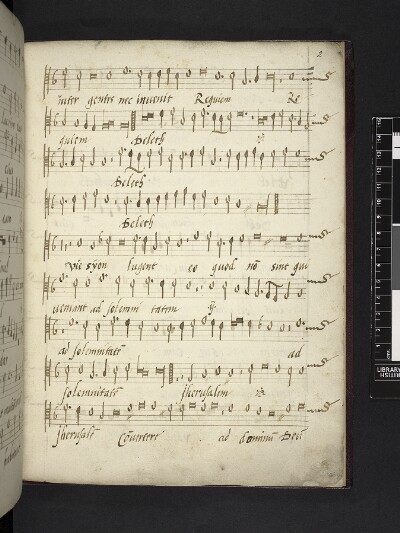 2
Inter gentes nec invenit Requiem Re
quiem Beleth ij
Beleth
Beleth
vie syon lugent eo quod nō sint qui
veniant ad solemni tatem ij
ad solemnitatē ad
solemnitatē Jherusalem ij
Jherusalē Cōvertere ad dominū Deū
LIBRARY